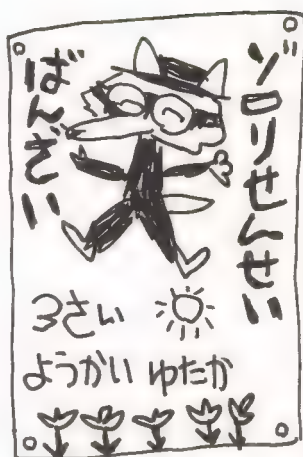 ゾロリせんせい
ばんざい
3さい
ようかい ゆたか